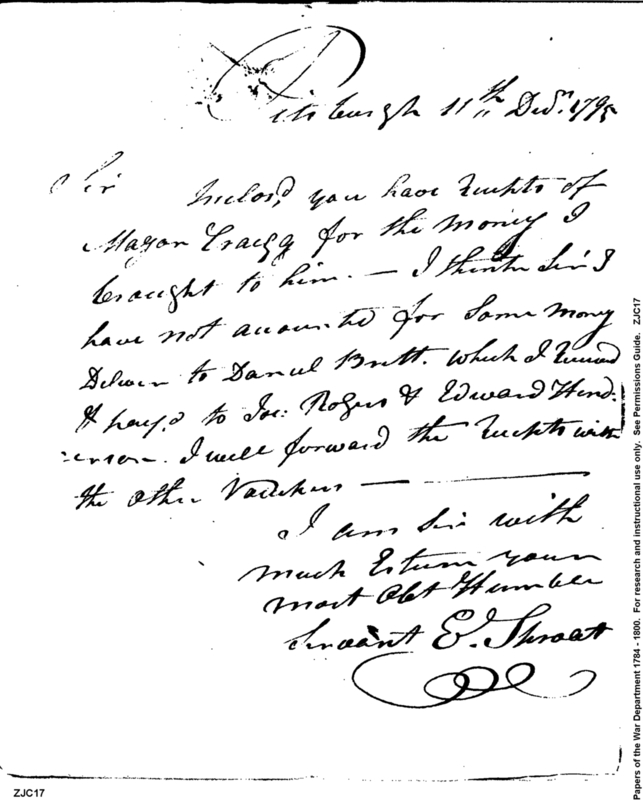 Pitsburgh 11th Decr. 1795
Sir Inclos,d you have Recepts of
Mayor Craigg for the Money I
braught to him. — I think Sir I
have not accounted for Some Money
Deliver to Daniel Britt. which I Receivd
& pay,d to Jos: Rogers & Edward Hend:
:erson. I will forward the Recepts with
the other Vauchers —
I am Sir with
much Esteem your
most Obt Humble
Servant E. Sproat
Papers of the War Department 1784 - 1800. For research and instructional use only. See Permissions Guide. ZJC17
ZJC17